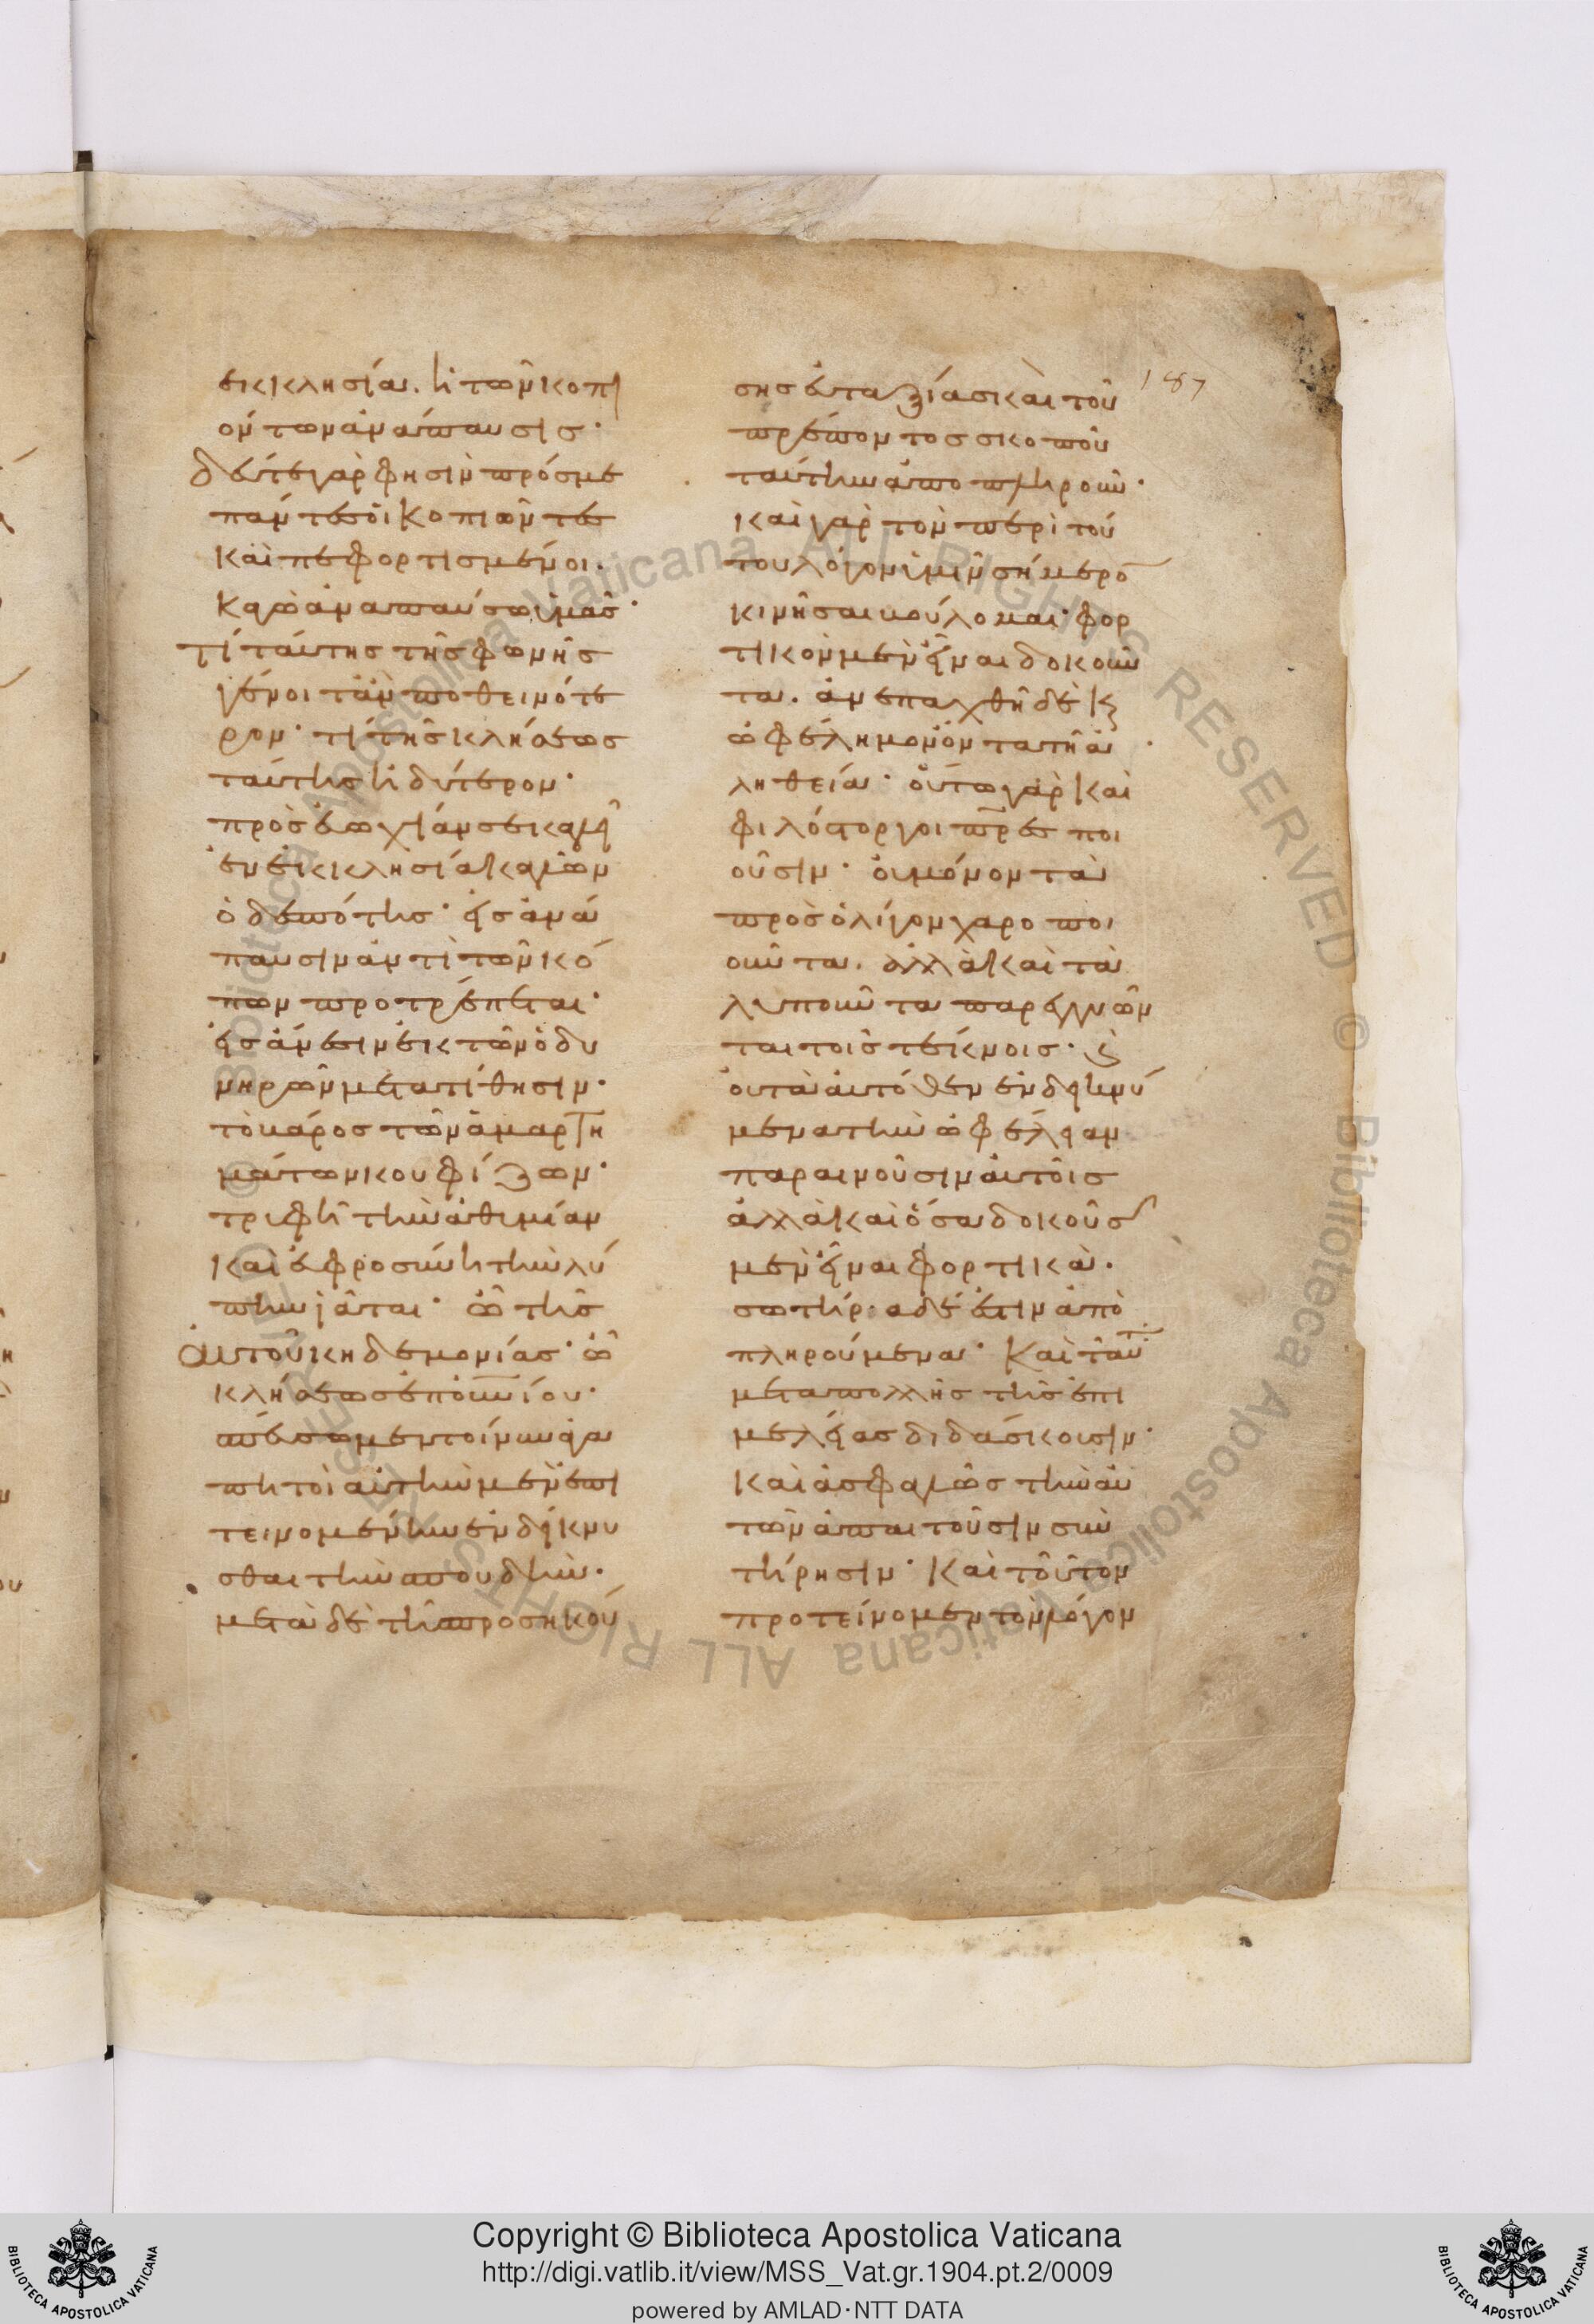 ἐκκλησία. ἡ τῶν κοπι
όντων ἀνάπαυσις·
δεύτε γὰρ φησὶν πρός με
πάντες οἱ κοπιῶντες
καὶ πεφορτισμένοι.
καγὼ ἀναπαύσω ὑμᾶς·
τί ταύτης τῆς φωνῆς
γένοιτ' ἂν ποθεινότε
ρον· τί τῆς κλήσεως
ταύτης ἡδύτερον·
πρὸς εὐωχίαν σε καλεῖ
ἐν ἐκκλησία καλῶν
ὁ δεσπότης· εἰς ἀνά
παυσιν ἀντὶ τῶν κό
πων προτρέπεται·
εἰς ἄνεσιν ἐκ τῶν ὀδυ
νηρῶν μετατίθησιν·
τὸ βάρος τῶν ἁμαρτη
μάτων κουφίζων·
τρυφῆ τὴν ἀθυμίαν
καὶ εὐφροσύνη τὴν λύ
πην ἰᾶται· ὢ τῆς
αὐτοῦ κηδεμονίας· ὢ
κλήσεως ἐπουνίου·
σπεύσωμεν τοίνυν ἀγα
πητοὶ αὐτὴν μὲν ἐπι
τεινομένην ἐνδείκνυ
σθαι τὴν σπουδήν·
μετὰ δὲ τῆς προσηκού
σης εὐταξίας καὶ τοῦ
πρέποντος σκοποῦ
ταύτην ἀποπληροῦν·
καὶ γὰρ τὸν περὶ τού
του λόγον ὑμῖν σήμερο
κινῆσαι βούλομαι· φορ
τικὸν μὲν εἶναι δοκοῦν
τα. ἀνεπαχθῆ δὲ κ
ὠφέλημον ὄντα τῆ ἀ
ληθεία· οὕτω γὰρ καὶ
φιλόστοργοι πρες ποι
οῦσιν· οὐ μόνον τὰ
πρὸς ὀλίγον χαροποι
οῦντα. ἀλλὰ καὶ τὰ
λυποῦντα παρεγγυῶν
ται τοῖς τέκνοις· κ
οὐ τὰ αὐτόθεν ἐνδεικνύ
μενα τὴν ὠφέλειαν
παραινοῦσιν αὐτοῖς
ἀλλὰ καὶ ὅσα δοκοῦσ
μὲν εἶναι φορτικὰ.
σωτήρια δέ ἐστιν ἀπο
πληρούμενα· καὶ ταῦτ
μετὰ πολλῆς τῆς ἐπι
μελείας διδάσκουσιν·
καὶ ἀσφαλῶς τὴν αὐ
τῶν ἀπαιτοῦσιν συν
τήρησιν· καὶ τοῦτον
προτείνομεν τὸν λόγον
187
Copyright © Biblioteca Apostolica Vaticana
http://digi.vatlib.it/view/MSS_Vat.gr.1904.pt.2/0009
powered by AMLAD·NTT DATA
BIBLIOTECA APOSTOLICA VATICANA
BIBLIOTECA APOSTOLICA VATICANA
© Biblioteca Apostolica Vaticana ALL RIGHTS RESERVED © Biblioteca Apostolica Vaticana ALL RIGHTS RESERVED